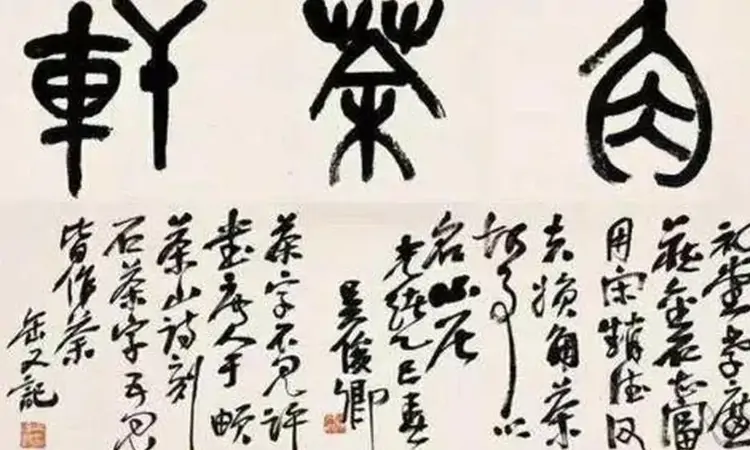 角茶軒
禮堂孝廉
藏金石甚富
用宋趙德父
夫婦角茶
故事以
名山居
光緒乙巳春
吳俊卿
茶字不見許
書唐人于頔
茶山詩刻
石茶字五見
皆作荼
缶又記